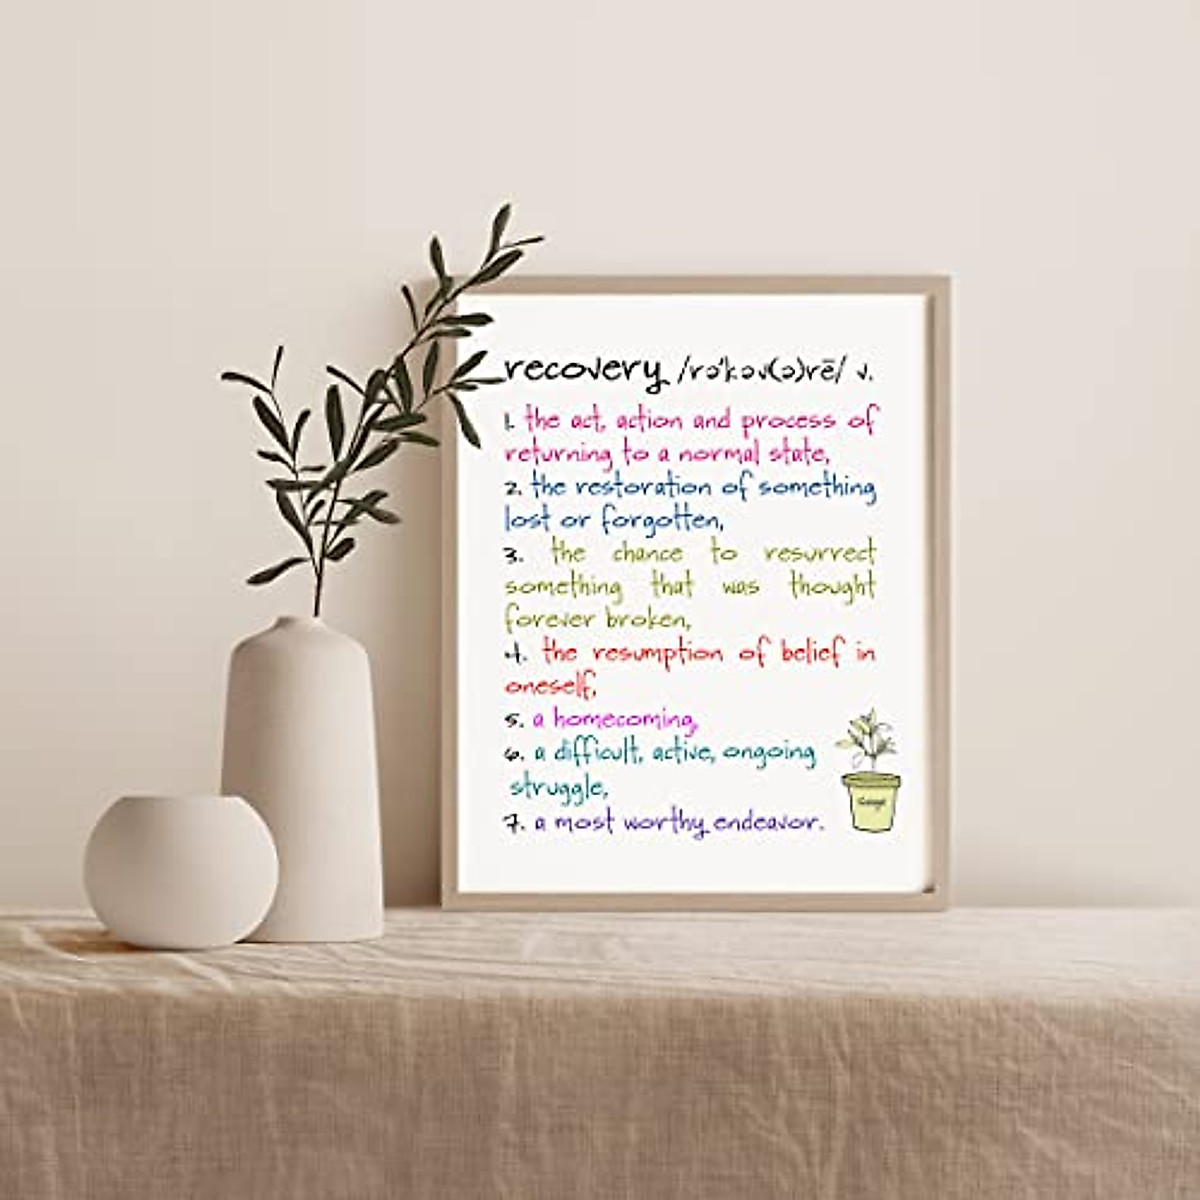 recovery /rəˈkəv(ə)rē/ v.
1. the act, action and process of
returning to a normal state,
2. the restoration of something
lost or forgotten,
3. the chance to resurrect
something that was thought
forever broken,
4. the resumption of belief in
oneself,
5. a homecoming,
6. a difficult, active, ongoing
struggle,
7. a most worthy endeavor.